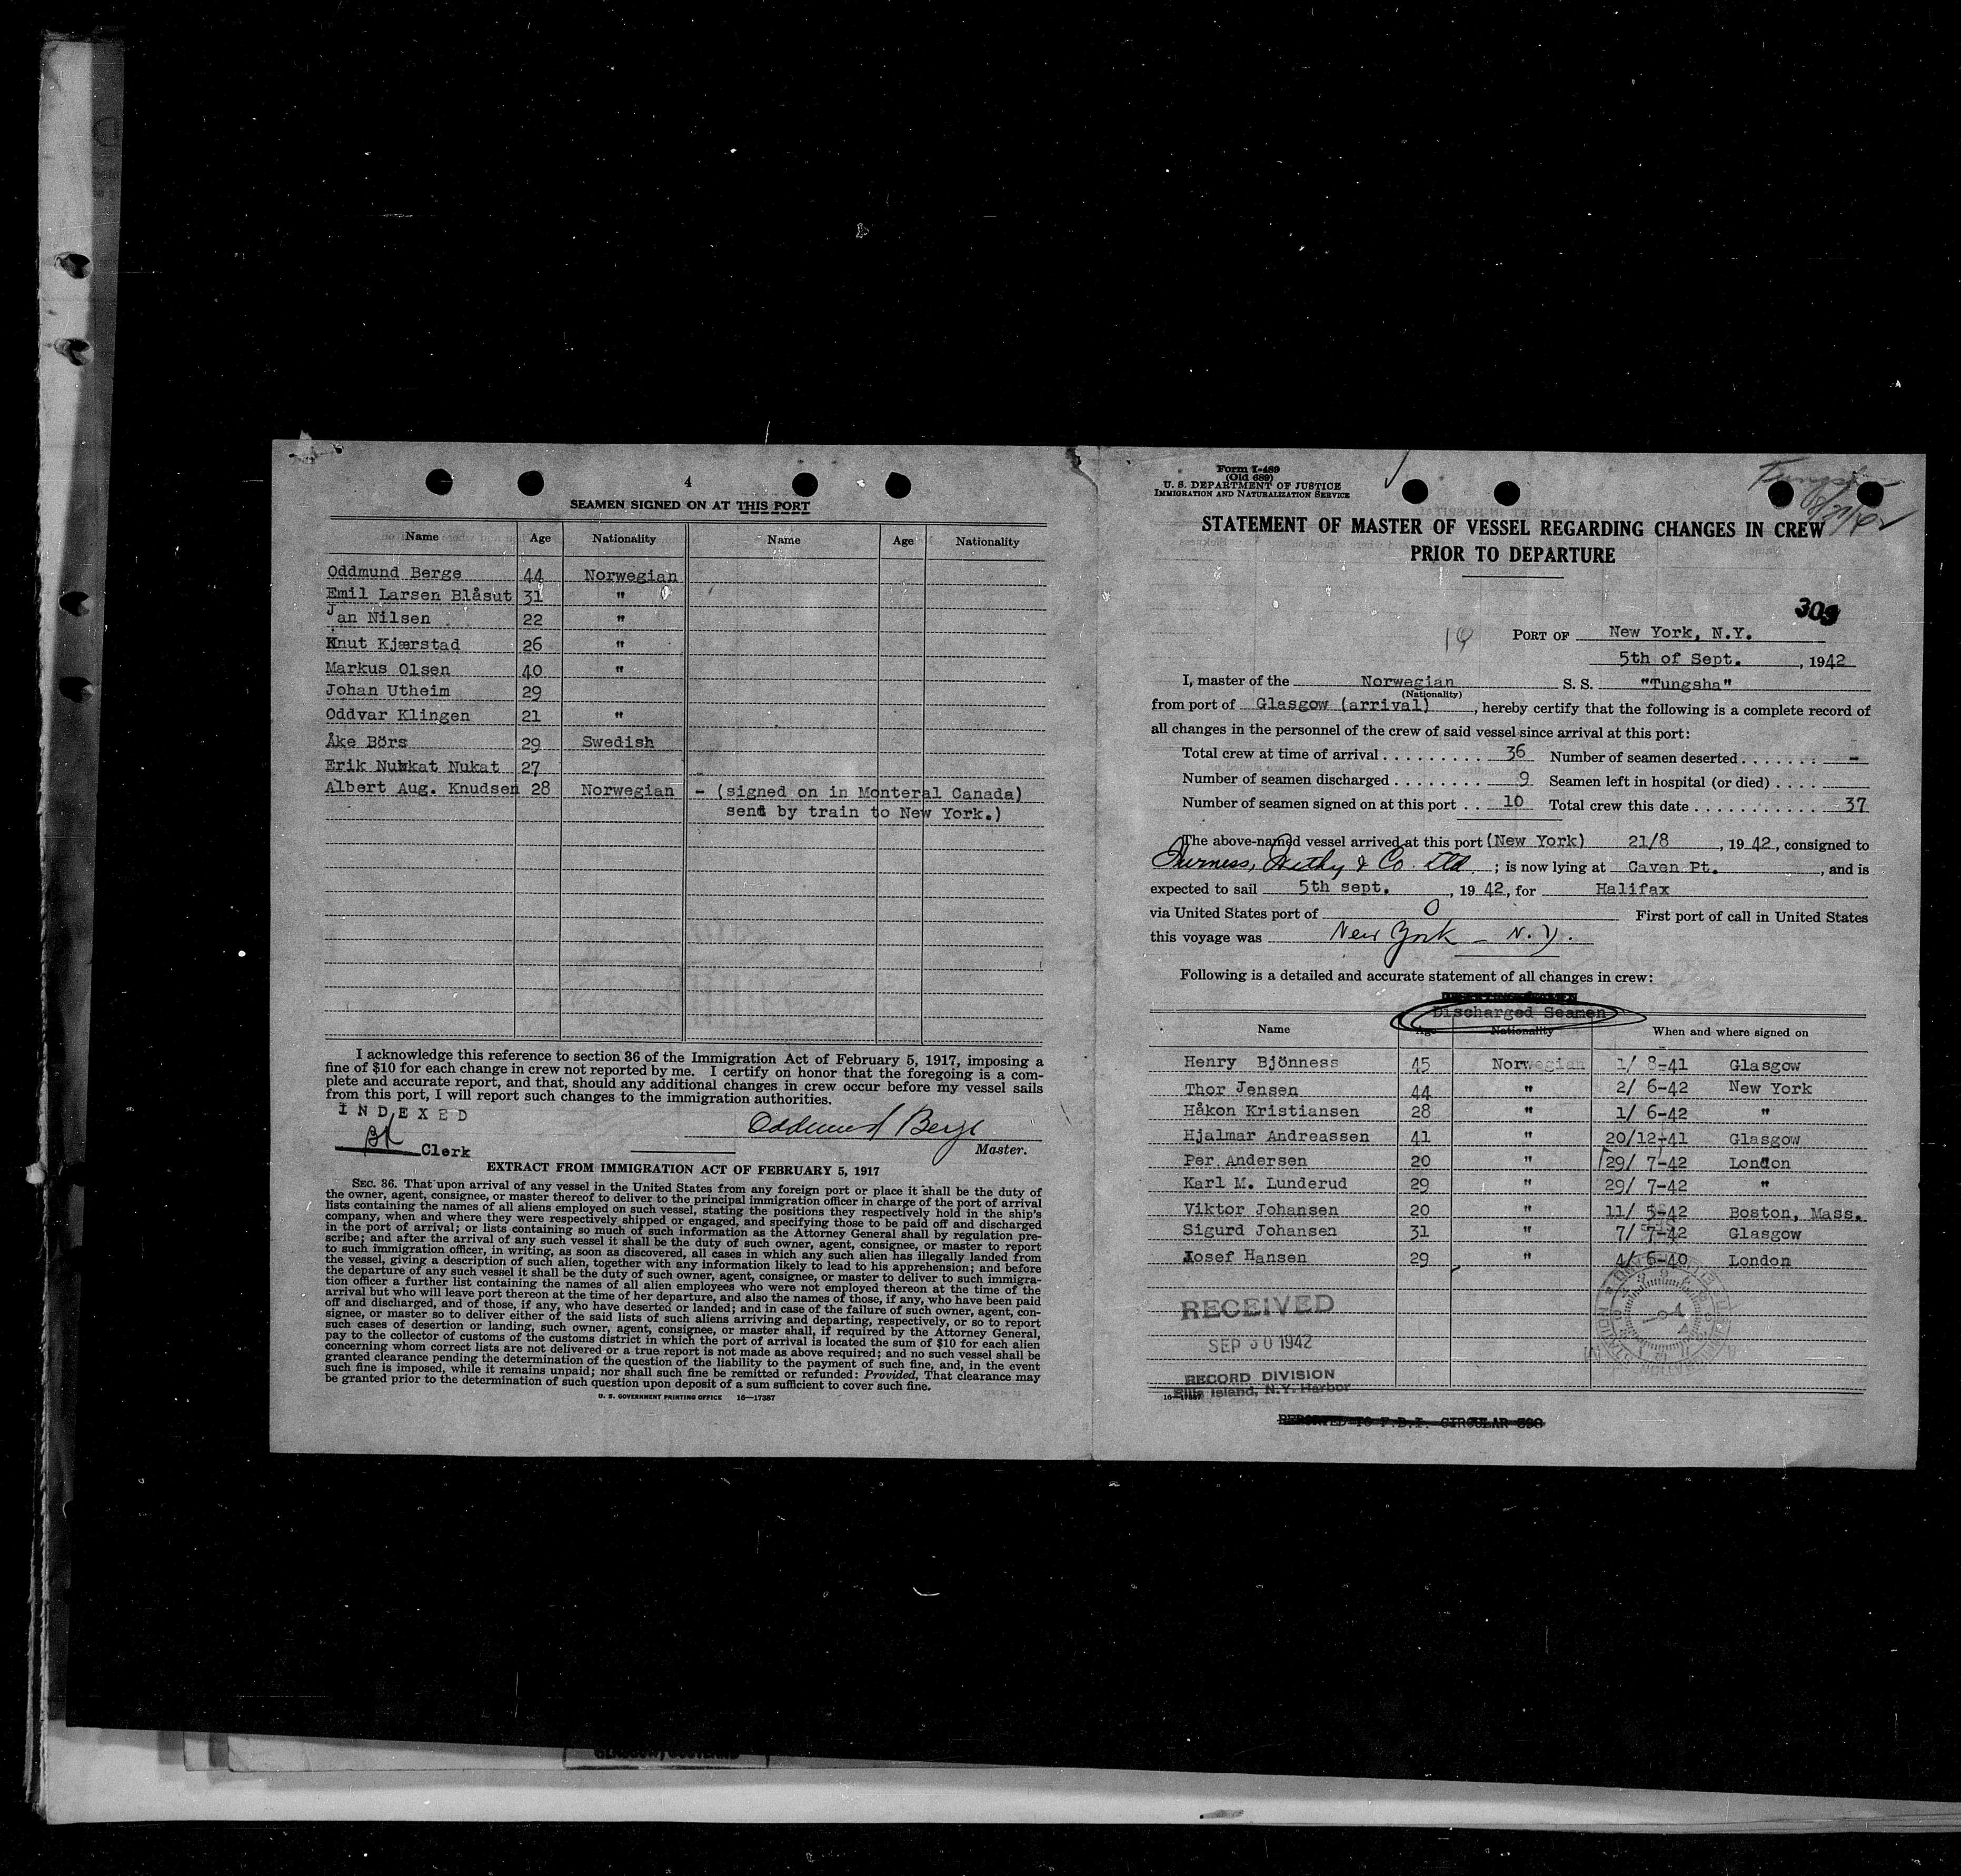 4
SEAMEN SIGNED ON AT THIS PORT
Name Age Nationality Name Age Nationality
Oddmund Berge 44 Norwegian
Emil Larsen Blåsut 31 "
Jan Nilsen 22 "
Knut Kjærstad 26 "
Markus Olsen 40 "
Johan Utheim 29
Oddvar Klingen 21 "
Åke Börs 29 Swedish
Erik Nukkat Nukat 27
Albert Aug. Knudsen 28 Norwegian - (signed on in Monteral Canada)
send by train to New York.)
I acknowledge this reference to section 36 of the Immigration Act of February 5, 1917, imposing a
fine of $10 for each change in crew not reported by me. I certify on honor that the foregoing is a com-
plete and accurate report, and that, should any additional changes in crew occur before my vessel sails
from this port, I will report such changes to the immigration authorities.
INDEXED
Oddmund Berge
Clerk
Master.
EXTRACT FROM IMMIGRATION ACT OF FEBRUARY 5, 1917
SEC. 36. That upon arrival of any vessel in the United States from any foreign port or place it shall be the duty of
the owner, agent, consignee, or master thereof to deliver to the principal immigration officer in charge of the port of arrival
lists containing the names of all aliens employed on such vessel, stating the positions they respectively hold in the ship's
company, when and where they were respectively shipped or engaged, and specifying those to be paid off and discharged
in the port of arrival; or lists containing so much of such information as the Attorney General shall by regulation pre-
scribe; and after the arrival of any such vessel it shall be the duty of such owner, agent, consignee, or master to report
to such immigration officer, in writing, as soon as discovered, all cases in which any such alien has illegally landed from
the vessel, giving a description of such alien, together with any information likely to lead to his apprehension; and before
the departure of any such vessel it shall be the duty of such owner, agent, consignee, or master to deliver to such immigra-
tion officer a further list containing the names of all alien employees who were not employed thereon at the time of the
arrival but who will leave port thereon at the time of her departure, and also the names of those, if any, who have been paid
off and discharged, and of those, if any, who have deserted or landed; and in case of the failure of such owner, agent, con-
signee, or master so to deliver either of the said lists of such aliens arriving and departing, respectively, or so to report
such cases of desertion or landing, such owner, agent, consignee, or master shall, if required by the Attorney General,
pay to the collector of customs of the customs district in which the port of arrival is located the sum of $10 for each alien
concerning whom correct lists are not delivered or a true report is not made as above required; and no such vessel shall be
granted clearance pending the determination of the question of the liability to the payment of such fine, and, in the event
such fine is imposed, while it remains unpaid; nor shall such fine be remitted or refunded: Provided, That clearance may
be granted prior to the determination of such question upon deposit of a sum sufficient to cover such fine.
U. S. GOVERNMENT PRINTING OFFICE 16—17387
Form I-489
(Old 689)
U. S. DEPARTMENT OF JUSTICE
IMMIGRATION AND NATURALIZATION SERVICE
STATEMENT OF MASTER OF VESSEL REGARDING CHANGES IN CREW
PRIOR TO DEPARTURE
309
14 PORT OF New York, N.Y.
5th of Sept. , 1942
I, master of the Norwegian S. S. "Tungsha"
(Nationality)
from port of Glasgow (arrival) , hereby certify that the following is a complete record of
all changes in the personnel of the crew of said vessel since arrival at this port:
Total crew at time of arrival . . . . . . . . . 36 Number of seamen deserted . . . . . . . -
Number of seamen discharged . . . . . . . . 9 Seamen left in hospital (or died) . . . .
Number of seamen signed on at this port . . 10 Total crew this date . . . . . . . . . . . . 37
The above-named vessel arrived at this port (New York) 21/8 , 1942, consigned to
Furness, Withy & Co. Ltd. ; is now lying at Caven Pt. , and is
expected to sail 5th sept. , 1942, for Halifax
via United States port of 0 First port of call in United States
this voyage was New York - N.Y.
Following is a detailed and accurate statement of all changes in crew:
Discharged Seamen
Name Age Nationality When and where signed on
Henry Bjönness 45 Norwegian 1/ 8-41 Glasgow
Thor Jensen 44 " 2/ 6-42 New York
Håkon Kristiansen 28 " 1/ 6-42 "
Hjalmar Andreassen 41 " 20/12-41 Glasgow
Per Andersen 20 " 29/ 7-42 London
Karl M. Lunderud 29 " 29/ 7-42 "
Viktor Johansen 20 " 11/ 5-42 Boston, Mass.
Sigurd Johansen 31 " 7/ 7-42 Glasgow
Josef Hansen 29 " 4/ 6-40 London
RECEIVED
SEP 30 1942
RECORD DIVISION
Ellis Island, N.Y. Harbor
16—17387
REPORTED TO F.B.I. CIRCULAR 398
GLASGOW, SCOTLAND